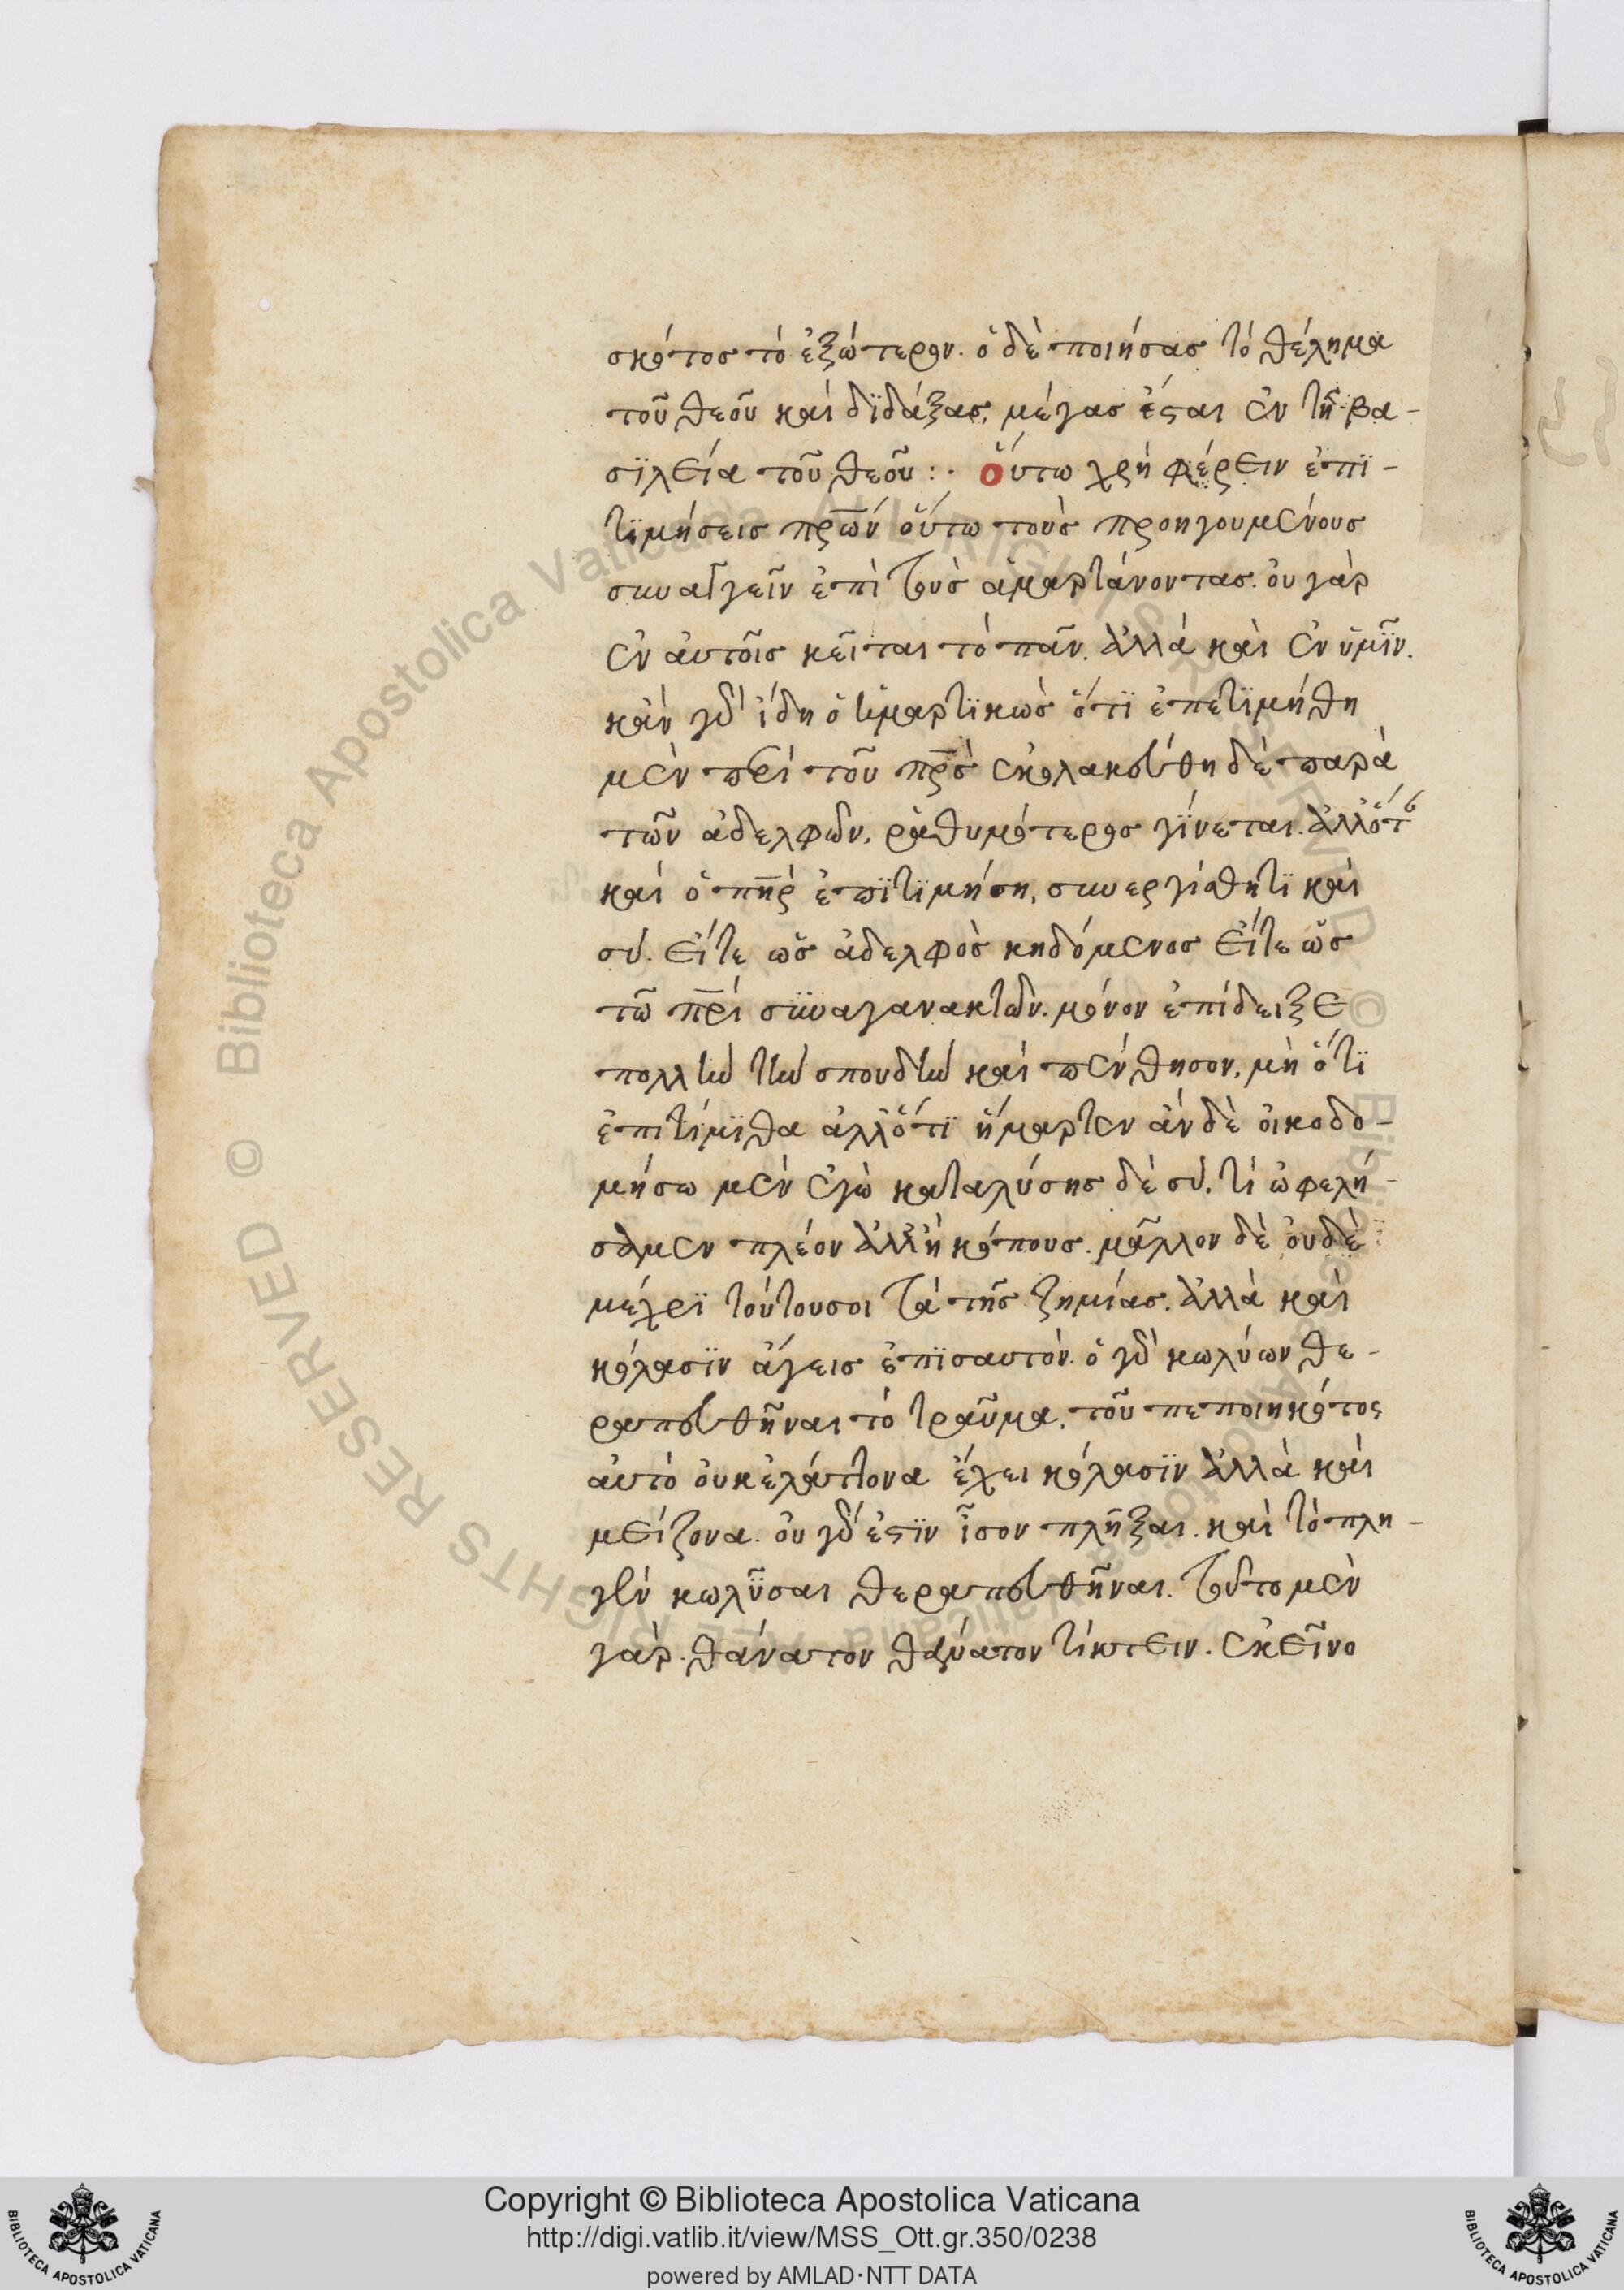 σκότος τὸ ἐξώτερον. ὁ δὲ ποιήσας τὸ θέλημα
τοῦ θεοῦ καὶ διδάξας, μέγας ἔσται ἐν τῆ βα-
σϊλεία τοῦ θεοῦ :· ὅυτω χρὴ φέρειν ἐπϊ-
τϊμήσεις πρ̅ων ὅυτω τοὺς προηγουμένους
συναλγεῖν ἐπὶ τοὺς ἁμαρτάνοντας. ὀυ γὰρ
ἐν ἀυτοῖς κεῖται τὸ πᾶν. ἀλλὰ καὶ ἐν ὑμῖν.
κἀν γὰρ ἴδη ὁ ἡμαρτϊκὼς ὅτϊ ἐπετϊμήθη
μὲν περὶ τοῦ πρ̅ς ἐκολακεύθη δὲ παρὰ
τῶν ἀδελφῶν, ραθυμότερος γίνεται. ἀλλ' ὅτ
καὶ ὁ πη̅ρ ἐπϊτϊμήση, συνεργίσθητϊ καὶ
σύ. εἴτε ὡς ἀδελφὸς κηδόμενος εἴτε ὡς
τῶ πρ̅ι συναγανακτῶν. μόνον ἐπίδειξε
πολλὴν τὴν σπουδὴν καὶ πένθησον, μὴ ὅτϊ
ἐπιτίμϊθα ἀλλ' ὅτϊ ἥμαρτεν ἀν δὲ ὀικοδο-
μήσω μὲν ἐγὼ καταλύσης δὲ σύ. τί ὠφελή-
σαμεν πλέον ἀλλ' ἢ κόπους. μᾶλλον δὲ ὀυδὲ
μέχρϊ τούτου σοι τὰ τῆς ζημίας. ἀλλὰ καὶ
κόλασϊν ἄγεις ἐπϊσαυτόν. ὁ γὰρ κωλύων θε-
ραπευθῆναι τὸ τραῦμα, τοῦ πεποιηκότος
ἀυτὸ ὀυκ ἐλάττονα ἔχει κόλασϊν ἀλλὰ καὶ
μείζονα. ὀυ γὰρ ἐστϊν ἶσον πλῆξαι. καὶ τὸ πλη-
γὲν κωλῦσαι θεραπευθῆναι. τοῦτο μὲν
γὰρ. θάνατον θάνατον τίκτειν. ἐκεῖνο
Copyright © Biblioteca Apostolica Vaticana
http://digi.vatlib.it/view/MSS_Ott.gr.350/0238
powered by AMLAD·NTT DATA